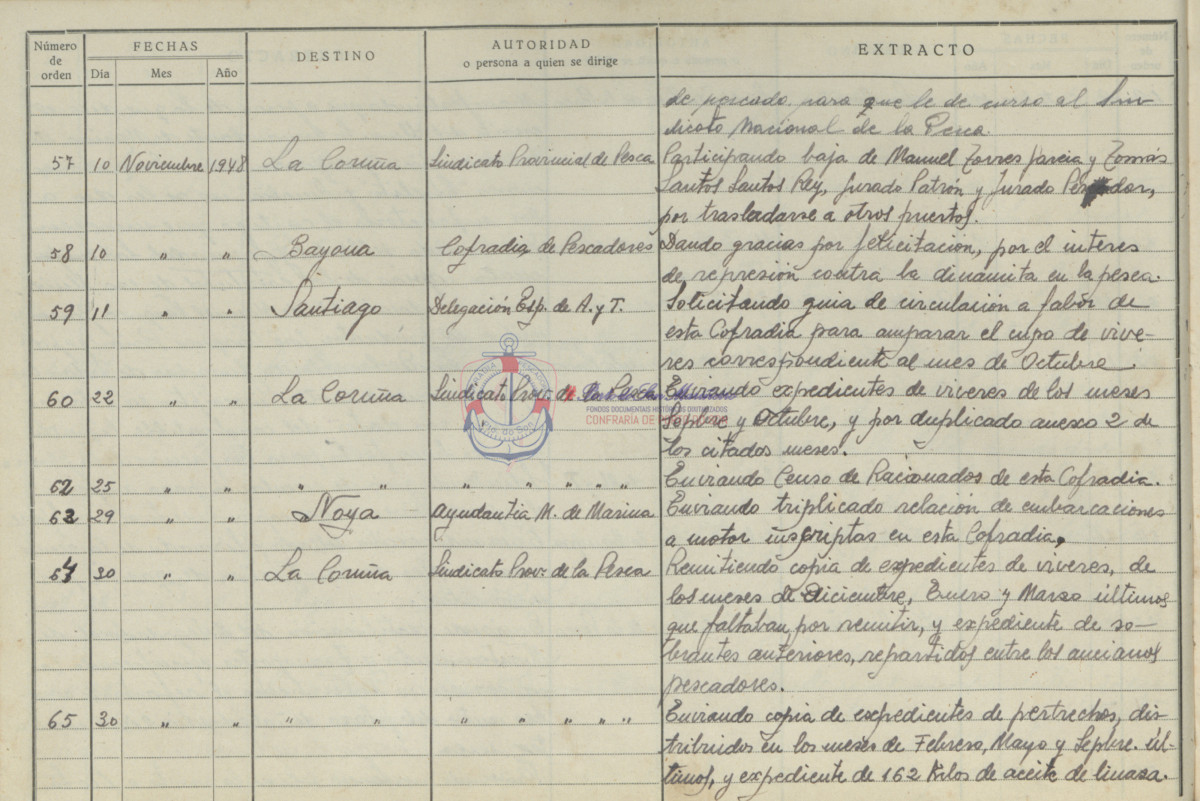 Número de orden FECHAS DESTINO AUTORIDAD o persona a quien se dirige EXTRACTO
Dia Mes Año
de pescado para que le de curso al Sin-
dicato Nacional de la Pesca
57 10 Noviembre 1948 La Coruña Sindicato Provincial de Pesca Participando baja de Manuel Torres Garcia y Tomás
Santos Santos Rey, Jurado Patrón y Jurado Pescador,
por trasladarse a otros puertos.
58 10 " " Bayona Cofradia de Pescadores Dando gracias por felicitación, por el interes
de represión contra la dinamita en la pesca.
59 11 " " Santiago Delegación Esp. de A. y T. Solicitando guia de circulación a fabor de
esta Cofradia para amparar el cupo de vive-
res correspondiente al mes de Octubre
60 22 " " La Coruña Sindicato Prov. de la Pesca Enviando expedientes de viveres de los meses
Sepbre y Octubre, y por duplicado anexo 2 de
los citados meses.
FONDOS DOCUMENTAIS HISTÓRICOS DIXITALIZADOS
CONFRARÍA DE
62 25 " " " " " " " " Enviando Censo de Racionados de esta Cofradia.
63 29 " " Noya Ayudantia M. de Marina Enviando triplicado relación de embarcaciones
a motor inscriptas en esta Cofradia,
64 30 " " La Coruña Sindicato Prov. de la Pesca Remitiendo copia de expedientes de viveres, de
los meses de Diciembre, Enero y Marzo últimos
que faltaban por remitir, y expediente de so-
brantes anteriores, repartidos entre los ancianos
pescadores.
65 30 " " " " " " " " " Enviando copia de expedientes de pertrechos, dis-
tribuidos en los meses de Febrero, Mayo y Sepbre. úl-
timos, y expediente de 162 Kilos de aceite de linaza.